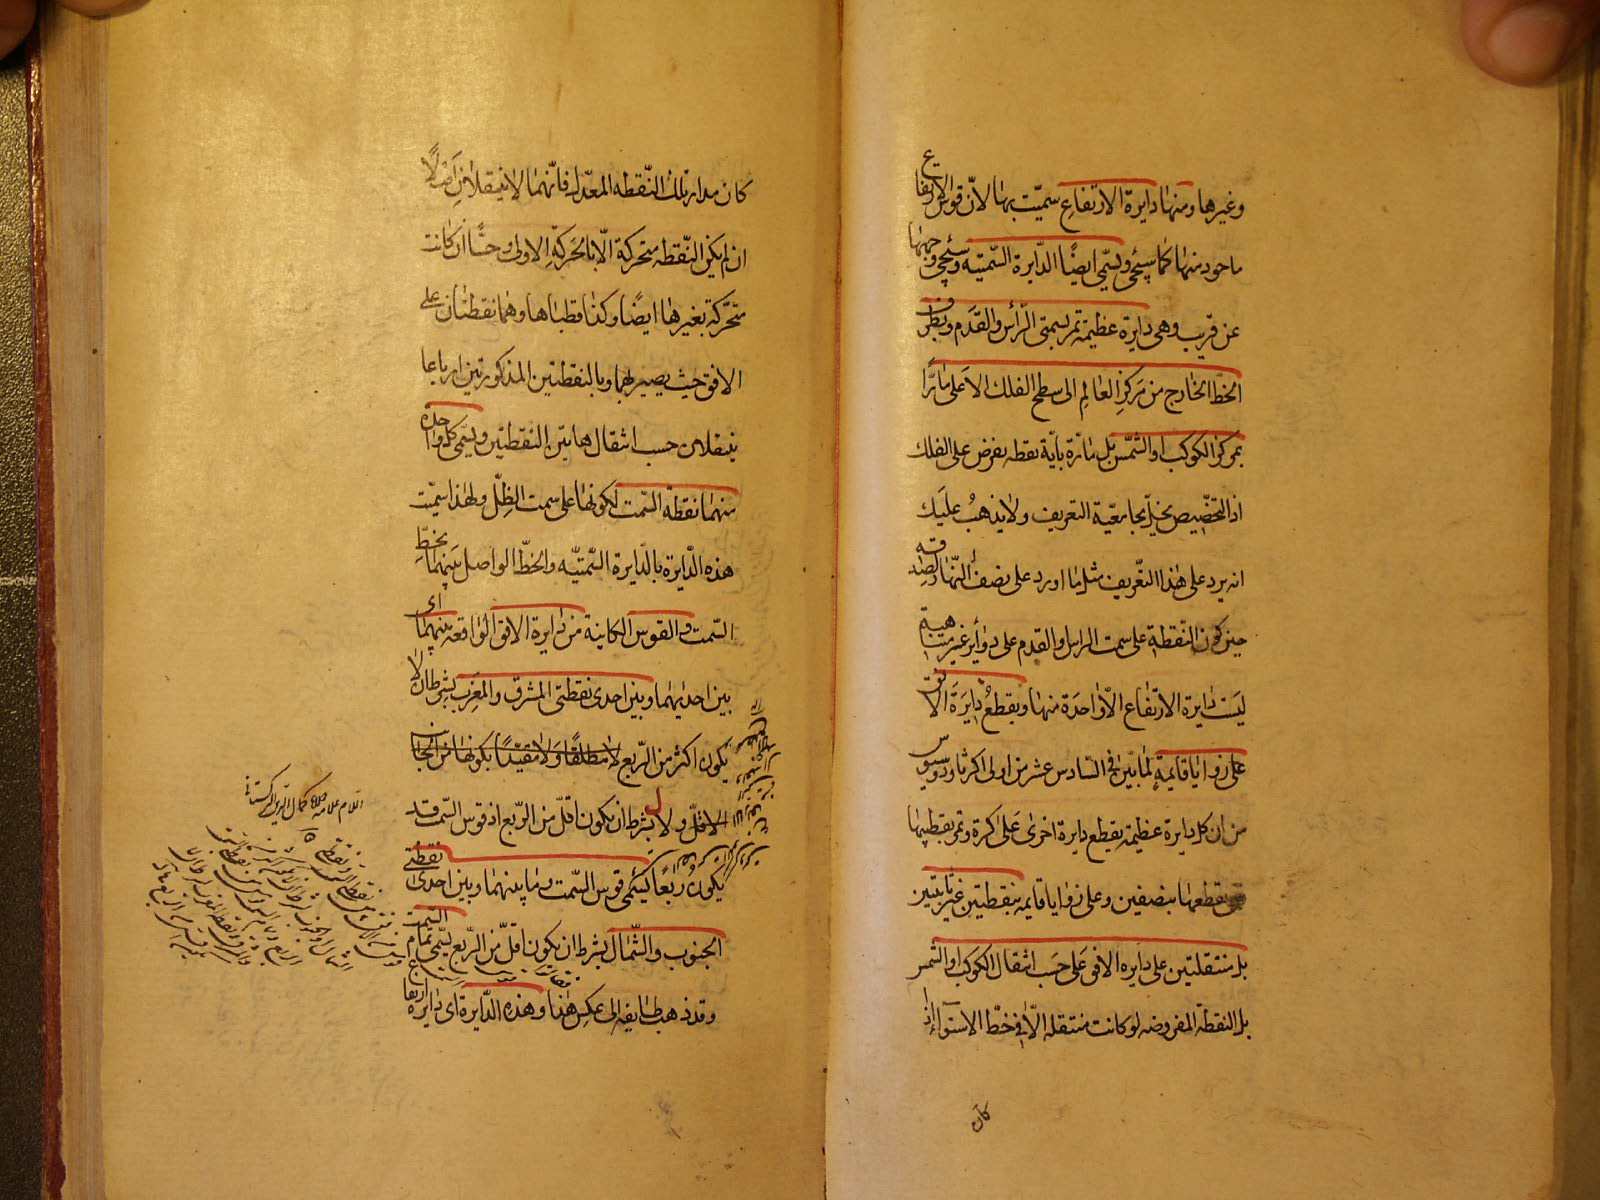 وغيرها ومنها دايرة الارتفاع سميّت بها لانّ قوس الارتفاع
ماخوذ منها كما سيجئ ويسمّى ايضًا الدّايرة السّمتيه وسيجئ وجهها
عن قريب وهى دايرة عظيمة تمر بسمتى الرّأس والقدم وبطرف
الخطّ الخارج من مركز العالم الى سطح الفلك الاعلى مارًّا
بمركز الكوكب او الشّمس بل مارّة بايّة نقطه يفرض على الفلك
اذ التخصّيص يخلّ بجامعيّة التعريف ولا يذهبُ عليك
انه يرد على هذا التعّريف مثل ما اورد على نصف النّهار وقت
حين كون النّقطة على سمت الراس والقدم على دوأير غير متناهية
ليست دايرة الارتّفاع الّا واحدة منها ويقطعُ دايرة الافق
على زوايا قايمة لما بيّن فى السّادس عشر من اولى اكرثاودوسيوس
من ان كل دايرة عظيمة يقطع دايرة اخرى على كرة وتمر بقطبيها
يقطعها بنصفين وعلى زوايا قايمه بنقطتين غير ثابتتين
بل منتقلتين على دايره الافق على حسب انتقال الكوكب او الشّمس
بل النقطه المفروضه لو كانت منتقله الّا فى خطّ الاستواء اذا
كان
كان مدار تلك النّقطه المعدّل فانّهما لا ينتقلان اصلًا
ان لم يكن النّقطه متحركة الّا بالحركة الاولى وحسًّا ان كانت
متحرّكة بغيرها ايضًا وكذا قطباها وهما نقطتان على
الافق حيث يصير بهما وبالنقطتين المذكورتين ارباعا
ينتقلان حسب انتقال هاتين النقطتين ويسمّى كل واحدة
منهما نقطة السّمت لكونها على سمت الظلّ ولهذا سميّت
هذه الدّايرة بالدّايرة السّمتيّه والخطّ الواصل بينهما بخطّ
السّمت والقوس الكاينة من دايرة الافق الواقعه بينهما اى
بين احديهما وبين احدى نقطتى المشرق والمغرب بشرط ان لا
يكون اكثر من الرّبع لا مطلقًا ولا مقيّدًا بكونها من الجانب
الاقلّ ولا بشرط ان يكون اقلّ من الرّبع اذ قوس السّمت قد
يكون ربعًا يسمى قوس السّمت وما بينهما وبين احدى نقطتى
الجنوب والشّمال بشرط ان يكون اقلّ من الرّبع يسمّى تمام السّمت
وقد ذهب طايفه الى عكس هذا وهذه الدّايرة اى دايرة ارتفاع